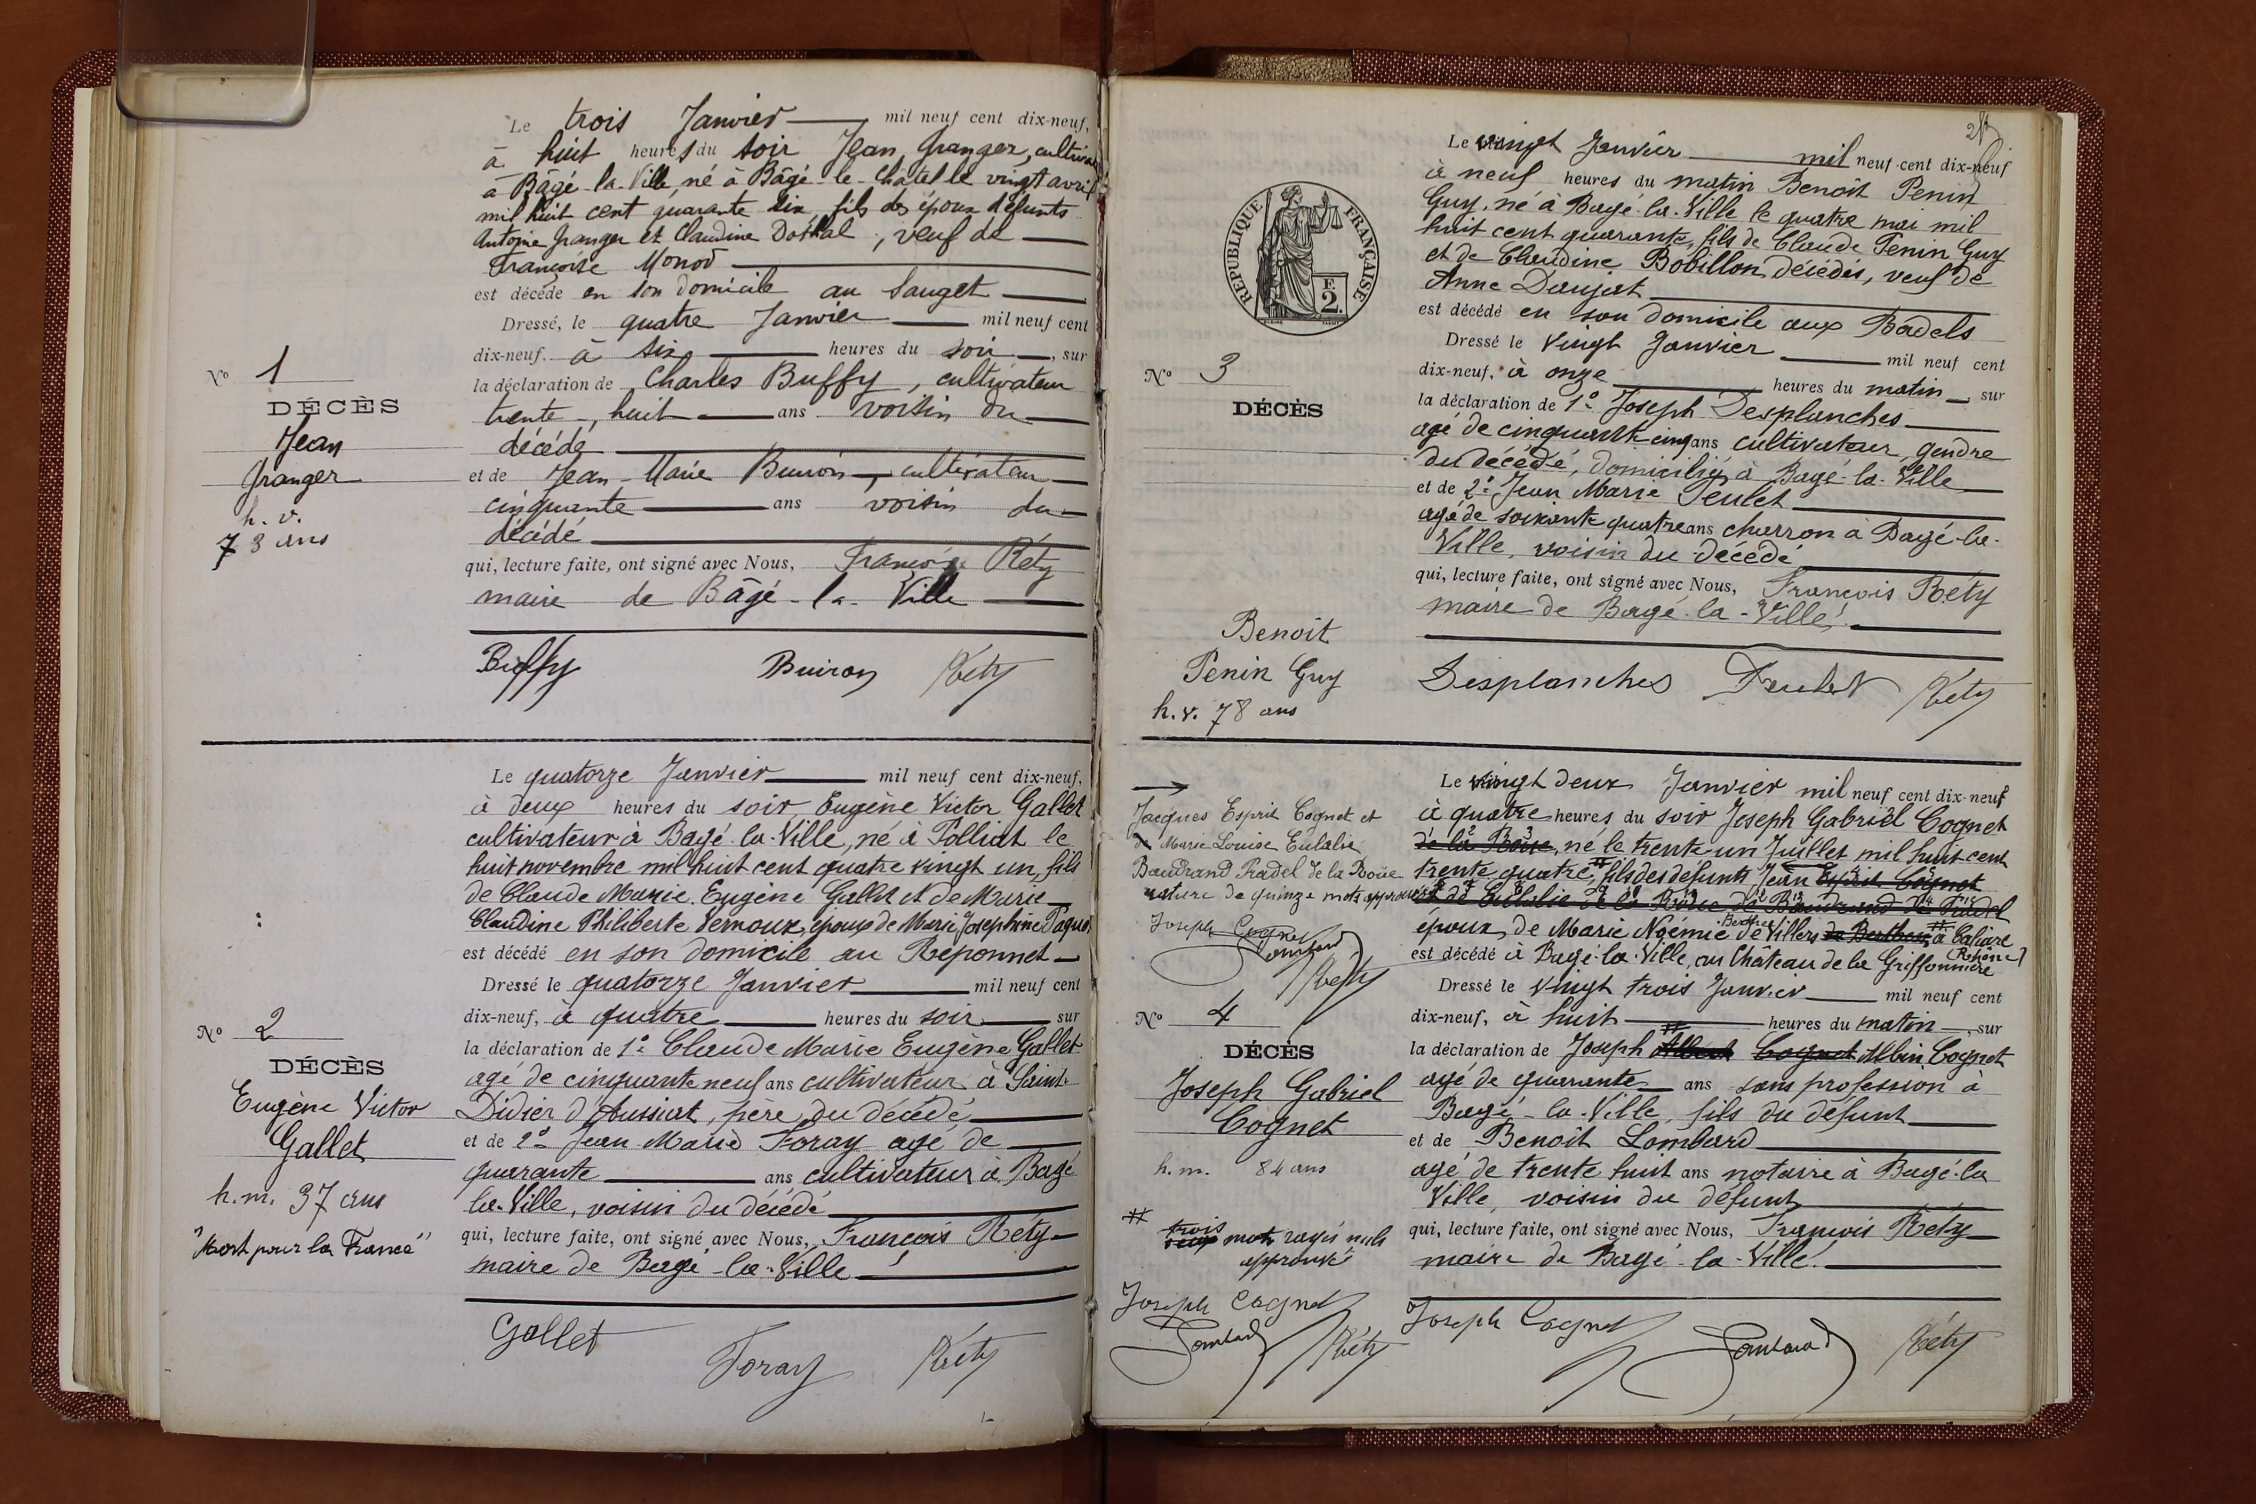 Le trois Janvier mil neuf cent dix-neuf,
à huit heures du soir Jean Granger, cultivateur
à Bâgé-la-Ville, né à Bâgé-le-Châtel le vingt avril
mil huit cent quarante six fils des époux défunts
Antoine Granger et Claudine Dothal, veuf de
Françoise Monod
est décédé en son domicile au Sauget
Dressé, le quatre Janvier mil neuf cent
dix-neuf, à six heures du soir, sur
la déclaration de Charles Buffy, cultivateur
trente-huit ans voisin du
décédé
et de Jean-Marie Buiron, cultivateur
cinquante ans voisin du
décédé
qui, lecture faite, ont signé avec Nous, François Réty
maire de Bâgé-la-Ville
Buffy Buiron Réty
No 1
DÉCÈS
Jean
Granger
h. v.
73 ans
Le quatorze Janvier mil neuf cent dix-neuf,
à deux heures du soir, Eugène Victor Gallet
cultivateur à Bagé-la-Ville, né à Polliat le
huit novembre mil huit cent quatre vingt un, fils
de Claude Marie Eugène Gallet et de Marie
Claudine Philiberte Vernoux, époux de Marie Josephine Paquet
est décédé en son domicile au Réponnet
Dressé le quatorze Janvier mil neuf cent
dix-neuf, à quatre heures du soir sur
la déclaration de 1º Claude Marie Eugène Gallet
agé de cinquante neuf ans cultivateur à Saint
Didier d'Aussiat, père du décédé
et de 2º Jean Marie Foray agé de
quarante ans cultivateur à Bagé
la-Ville, voisin du décédé
qui, lecture faite, ont signé avec Nous, François Réty
maire de Bagé-la-Ville
Gallet Foray Réty
No 2
DÉCÈS
Eugène Victor
Gallet
h. m. 37 ans
"Mort pour la France"
Le vingt Janvier mil neuf cent dix-neuf
à neuf heures du matin Benoît Penin
Guy, né à Bagé-la-Ville le quatre mai mil
huit cent quarante, fils de Claude Penin Guy
et de Claudine Bobillon décédés, veuf de
Anne Daujat
est décédé en son domicile aux Badels
Dressé le vingt Janvier mil neuf cent
dix-neuf, à onze heures du matin, sur
la déclaration de 1º Joseph Desplanches
agé de cinquante cinq ans cultivateur, gendre
du décédé, domicilié à Bagé-la-Ville
et de 2º Jean Marie Peulet
agé de soixante quatre ans charron à Bagé-la-
Ville, voisin du décédé
qui, lecture faite, ont signé avec Nous, François Réty
maire de Bagé-la-Ville
Desplanches Peulet Réty
RÉPUBLIQUE FRANÇAISE
2.
No 3
DÉCÈS
Benoît
Penin Guy
h. v. 78 ans
Le vingt deux Janvier mil neuf cent dix-neuf
à quatre heures du soir Joseph Gabriel Cognet
de la Boue, né le trente un Juillet mil huit cent
trente quatre, fils des défunts Jean Esprit Cognet
et de Eulalie de la Boue de Baudrand de Pradel
époux de Marie Noémie Berthe de Villers de Berthe, à Caluire
(Rhône)
est décédé à Bagé-la-Ville, au Château de la Griffonnière
Dressé le vingt trois Janvier mil neuf cent
dix-neuf, à huit heures du matin, sur
la déclaration de Joseph Albert Cognet Albin Cognet
agé de quarante ans sans profession à
Bagé-la-Ville, fils du défunt
et de Benoît Lombard
agé de trente huit ans notaire à Bagé-la
Ville, voisin du défunt
qui, lecture faite, ont signé avec Nous, François Réty
maire de Bagé-la-Ville
Joseph Cognet Lombard Réty
Jacques Esprit Cognet et
de Marie Louise Eulalie
Baudrand Pradel de la Boüe
rature de quinze mots approuvée
Joseph Cognet
Lombard
Réty
No 4
DÉCÈS
Joseph Gabriel
Cognet
h. m. 84 ans
trois
mots rayés nuls
approuvé
Joseph Cognet
Lombard Réty